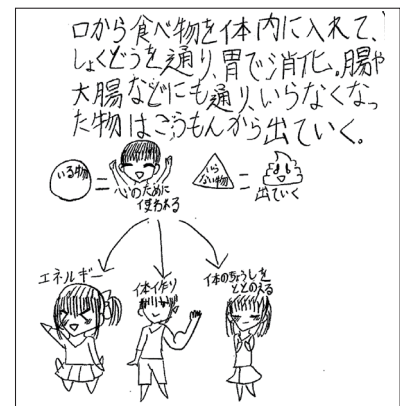 口から食べ物を体内に入れて、
しょくどうを通り、胃で消化。腸や
大腸などにも通り、いらなくなっ
た物はこうもんから出ていく。
いる物
=
心のために
使われる
いら
ない物
=
出ていく
エネルギー
体作り
体のちょうしを
ととのえる